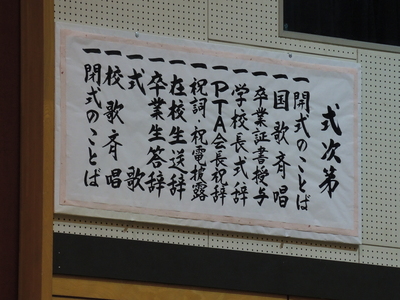 式次第
一開式のことば
一国歌斉唱
一卒業証書授与
一学校長式辞
一PTA会長祝辞
一祝詞・祝電披露
一在校生送辞
一卒業生答辞
一式歌
一校歌斉唱
一閉式のことば